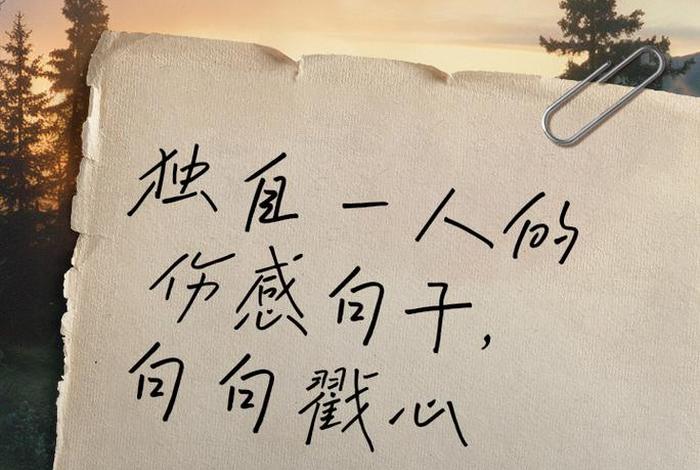 独自一人的
伤感句子,
句句戳心